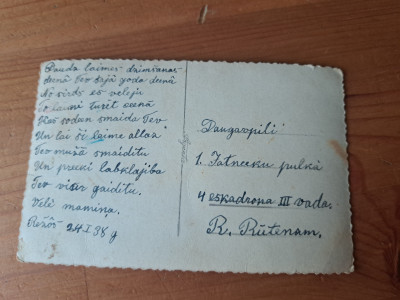 Daudz laimes dzimšanas
deenā Tev šajā goda deenā
No sirds es veleju
To laimi turēt ceenā
Kas šodan smaida Tev
Un lai šī laime allaž
Tev mužā smaiditu
Un prieki labklajiba
Tev visur gaiditu.
Vēlē mamiņa.
24 I 38 g
Daugavpilī
1. Jatneeku pulkā
4 eskadrona III vada.
R. Rūtenam.